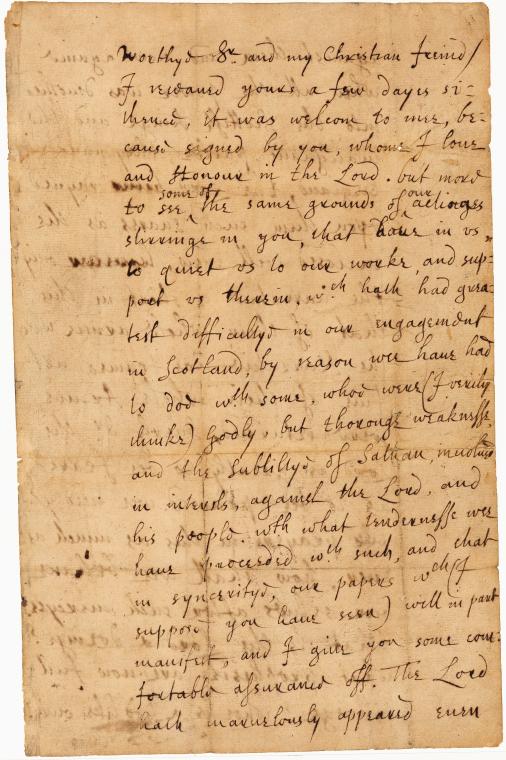 Worthye Sr. and my Christian freind /
I receaued yours a few dayes si-
thence, it was welcom to mee, be-
cause signed by you, whome I loue
and Honour in the Lord. but more
to see some of the same grounds of our actinges
stirringe in you, that haue in vs,
to quiet vs to our worke, and sup-
port vs therein. wch hath had grea-
test difficultye in our engagement
in Scotland, by reason wee haue had
to doe wth some, whoe were (I verily
thinke) Godly, but thorouge weaknesse,
and the Subtiltye of Sathan, inuolued
in interests, against the Lord, and
his people. wth what tendernesse wee
haue proceeded wth such, and that
in synceritye, our papers (wch I
suppose you haue seen) will in part
manifest, and I giue you some com-
fortable assurance off. The Lord
hath maruelously appeared euen